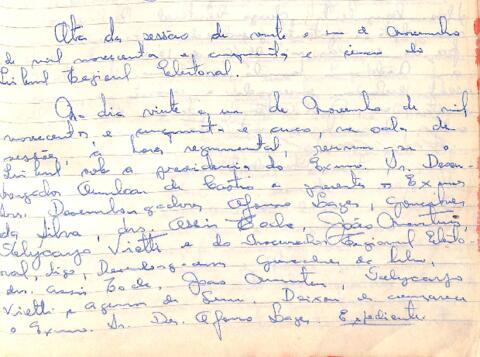 Ata da sessão de vinte e um de Novembro
de mil novecentos e cinquenta e cinco do
Tribunal Regional Eleitoral.
No dia vinte e um de Novembro de mil
novecentos e cinquenta e cinco, na sala de
sessões, à hora regimental, reuniu-se o
Tribunal sob a presidencia do Exmo. Sr. Desem-
bargador Amilcar de Castro e presentes os Exmos
drs. Desembargadores Afonso Lages, Gonçalves
da Silva, drs. Assis
Viotti e do Procurador Regional Eleito-
ral, digo, Desembargadores Gonçalves da Silva,
drs. Assis
Viotti e de Sena. Deixou de comparecer
o Exmo. Sr. Des. Afonso Lages. Expediente